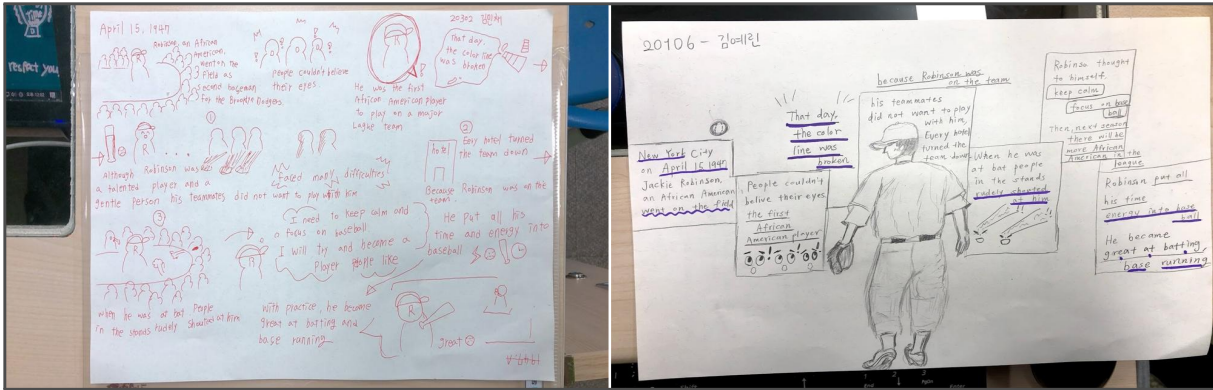 respect you
April 15, 1947
Robinson, an African
American,
went on the
Field as
second baseman
for the Brooklyn Dodgers.
people couldn't believe
their eyes.
20302
He was the first
African American player
to play on a major
League team
That day,
the color line
was broken
①
Although Robinson was
a talented player and a
gentle person his teammates did not want to play with him
Faced many difficulties
②
hotel
Every hotel turned
the team down
Because Robinson was on the
team.
③
when he was at bat People
in the stands rudely shouted at him
I need to keep calm and
focus on baseball
I will try and become a
Player
like
He put all his
time and energy into
baseball
With practice, he became
great at batting and
base running
Great
20106 - 김예린
New York City
on April 15 1947
Jackie Robinson
an African American
went on the field
That day,
the color
line was
broken
People couldn't
belive their eyes.
the first
African
American player
because Robinson was
on the team
his teammates
did not want to play
with him,
Every hotel
turned the
team down
When he was
at bat people
in the stands
rudely shouted
at him
Robinson thought
to himself.
keep calm
focus on base
ball
Then, next season
there will be
more African
American in the
league
Robinson put all
his time
energy into base
ball
He became
great at batting,
base running